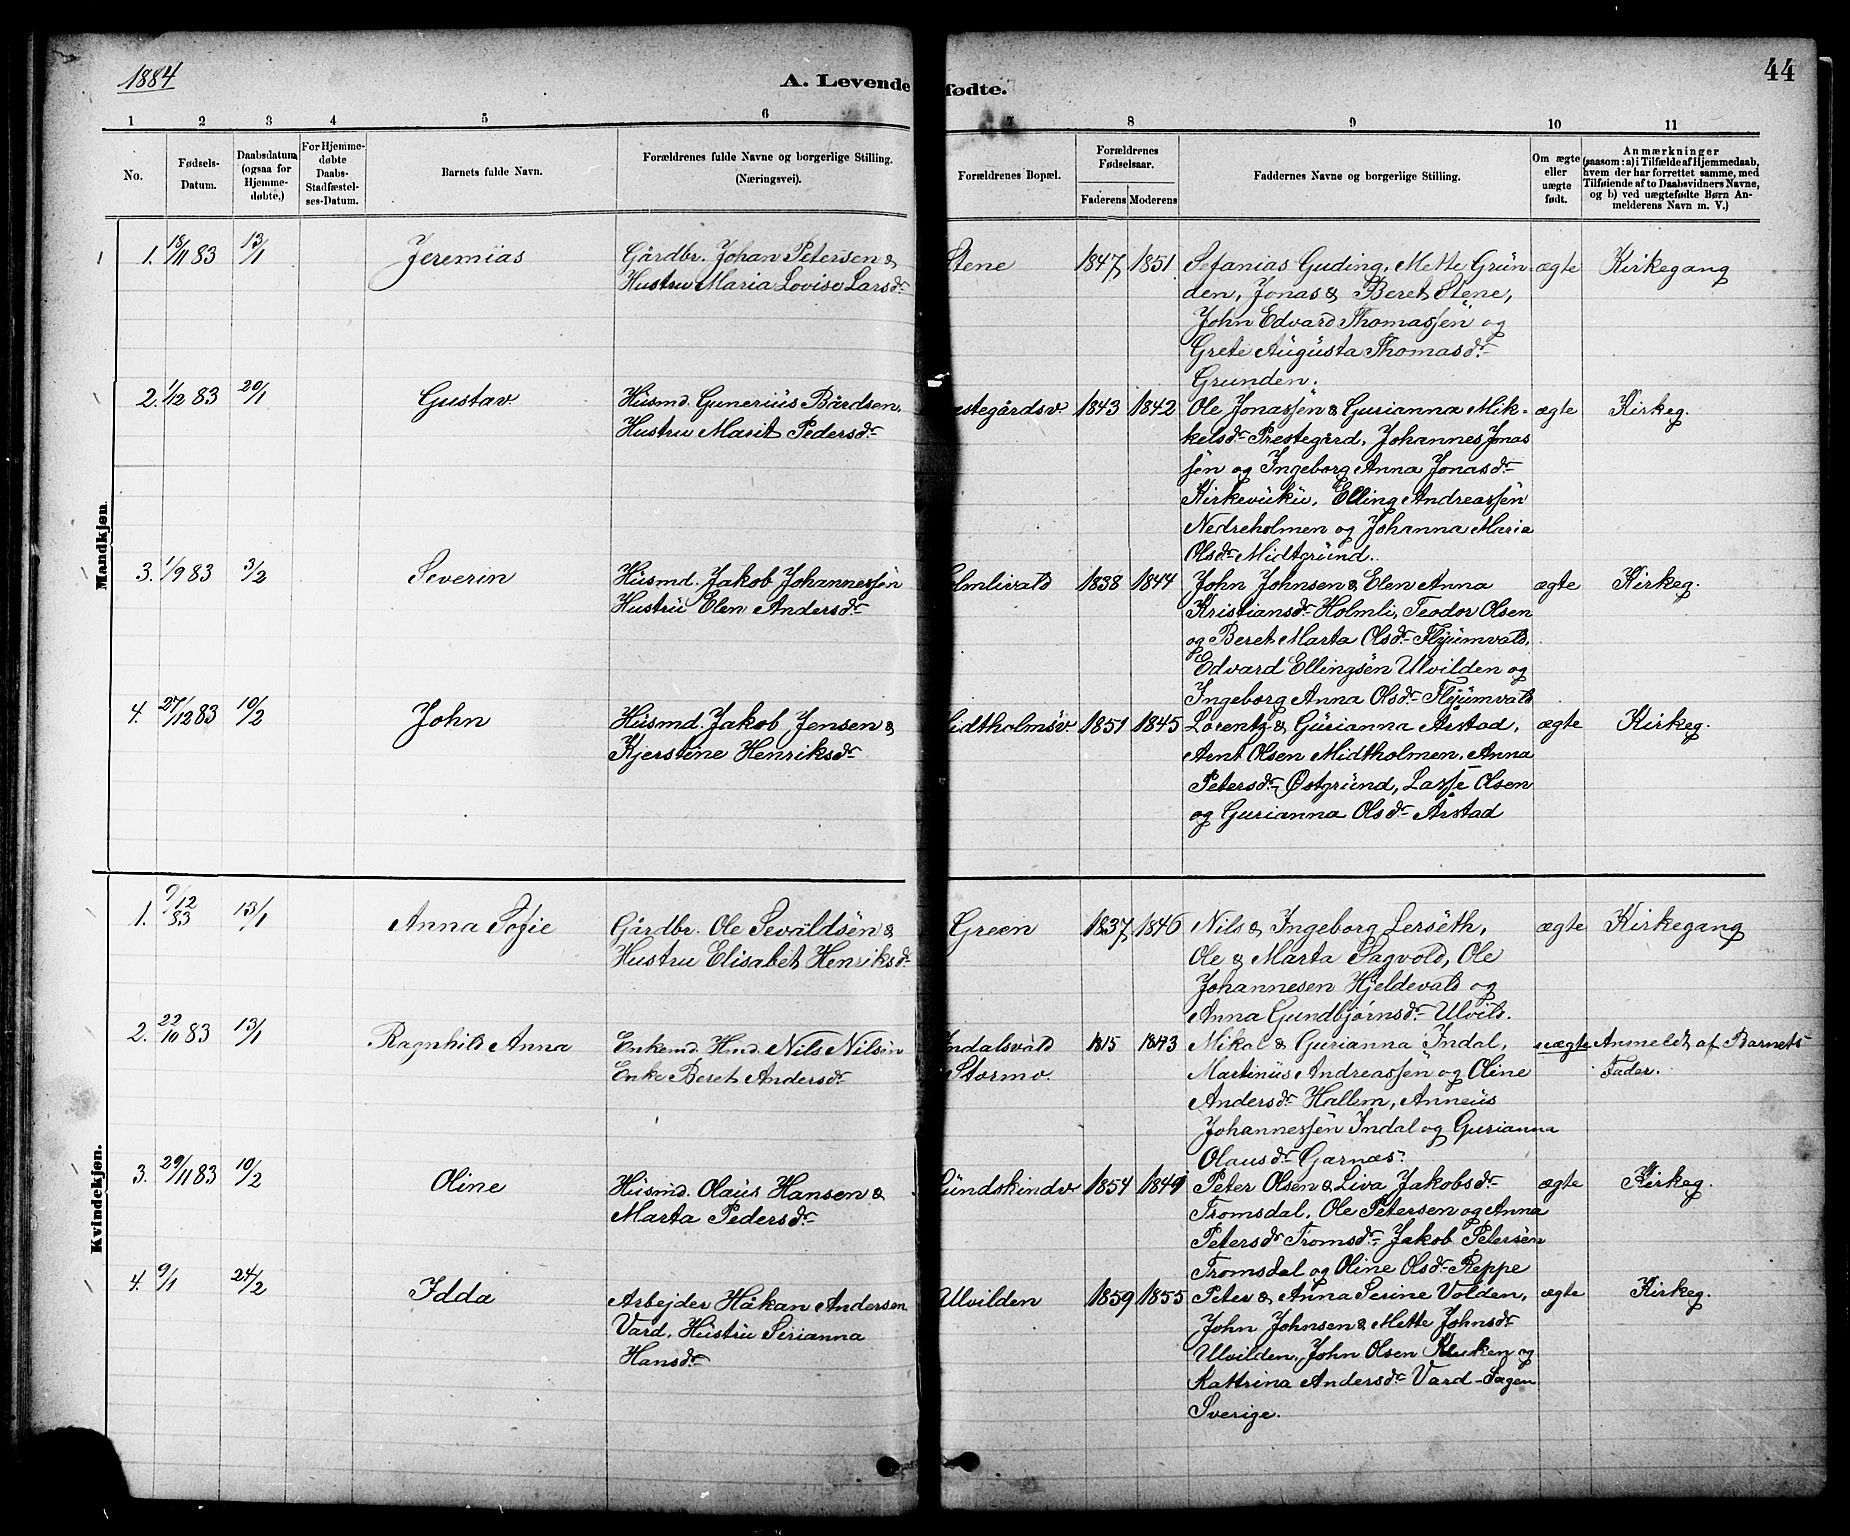 1884
A. Levende fødte.
44
1 2 3 4 5 6 7 8 9 10 11
No.
Fødsels-
Datum.
Daabsdatum
(ogsaa for
Hjemme-
døbte.)
For Hjemme-
døbte
Daabs-
Stadfæstel-
ses-Datum.
Barnets fulde Navn.
Forældrenes fulde Navne og borgerlige Stilling.
(Næringsvei).
Forældrenes Bopæl.
Forældrenes
Fødselsaar.
Faderens Moderens
Faddernes Navne og borgerlige Stilling.
Om ægte
eller
uægte
født.
Anmærkninger
(saasom: a) i Tilfælde af Hjemmedaab,
hvem der har forrettet samme, med
Tilføiende af to Daabsvidners Navne,
og b) ved uægtefødte Børn An-
melderens Navn m. V.)
Mandkjøn.
1. 18/11 83 13/1 Jeremias
Gårdbr. Johan Petersen &
Hustru Maria Lovise Larsdr
Stene 1847 1851
Sefanias Guding, Mette Grün-
den, Jonas & Beret Stene,
John Edvard Thomassen og
Grete Augusta Thomasdr
Grunden.
ægte Kirkegang
2. 1/12 83 20/1 Gustav
Husmd. Gunerius Bårdsen,
Hustru Marit Pedersdr
estegårdsv 1843 1842
Ole Jonassen & Gurianna Mik-
kelsdr Prestegård, Johannes Jonas
sen og Ingeborg Anna Jonasdr
Kirkevuku, Elling Andreassen
Nedreholmen og Johanna Maria
Olsdr Midtgrund.
ægte Kirkeg.
3. 1/9 83 3/2 Severin
Husmd. Jakob Johannessen
Hustru Elen Andersdr
olmlivald 1838 1844
John Johnsen & Elen Anna
Kristiansdr Holmli, Teodor Olsen
og Beret Marta Olsdr Flyumvald,
Edvard Ellingsen Ulvilden og
Ingeborg Anna Olsdr Flyumvald
ægte Kirkeg.
4. 27/12 83 10/2 John
Husmd. Jakob Jensen &
Kjerstine Henriksdr
idtholmsv 1851 1845
Lorentz & Gurianna Årstad,
Arnt Olsen Midtholmen, Anna
Petersdr Østgrund, Lasse Olsen
og Gurianna Olsdr Årstad
ægte Kirkeg.
Kvindekjøn.
1. 9/12 83 13/1 Anna Sofie
Gårdbr. Ole Sevaldsen &
Hustru Elisabet Henriksdr
Green 1837 1846
Nils & Ingeborg Lerseth,
Ole & Marta Sagvold, Ole
Johannesen Hjeldevald og
Anna Gundbjørnsdr Ulvild.
ægte Kirkegang
2. 22/10 83 13/1 Ragnhild Anna
Enkemd. Hmd. Nils Nilsen
Enke Beret Andersdr
Indalsvald
Stormo.
1815 1843
Mikal & Gurianna Indal,
Martinus Andreassen og Oline
Andersdr Hallem, Anneus
Johannessen Indal og Gurianna
Olausdr Garnæs.
uægte Anmeldt af Barnets
Fader.
3. 29/11 83 10/2 Oline
Husmd. Olaus Hansen &
Marta Pedersdr
Sundskindv 1854 1849
Peter Olsen & Liva Jakobsdr
Tromsdal, Ole Petersen og Anna
Petersdr Tromsd. Jakob Petersen
Tromsdal og Oline Olsdr Reppe
ægte Kirkeg.
4. 9/1 24/2 Idda
Arbejder Håkan Andersen
Vard, Hustru Serianna
Hansdr
Ulvilden 1859 1855
Peter & Anna Serine Volden,
John Johnsen & Mette Johnsdr
Ulvilden, John Olsen Kluken og
Kattrina Andersdr Vard-Sagen
Sverige.
ægte Kirkeg.